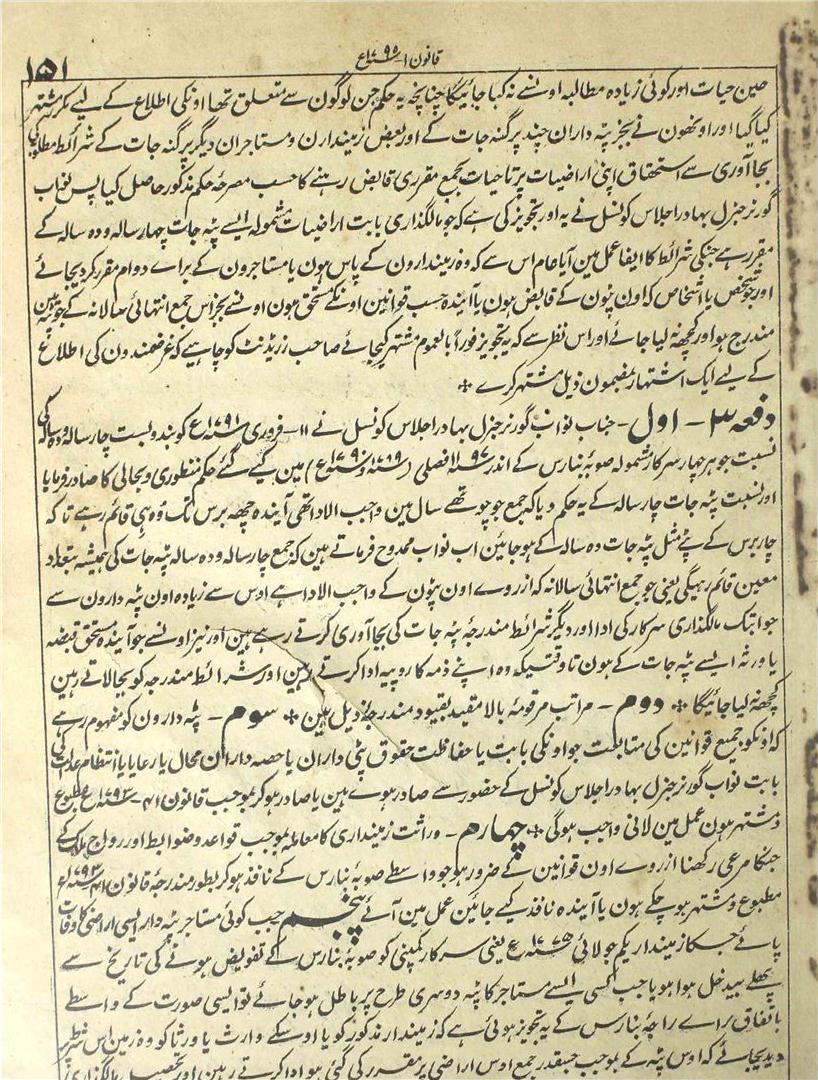 قانون ۱ – سنہ ۱۷۹۵ع
۱۵۱
حین حیات اور کوئی زیادہ مطالبہ اونسے نہ کیا جائیگا چنانچہ یہ حکم جن لوگون سے متعلق تھا اونکی اطلاع کے لیے مکرر مشتہر
کیا گیا اور اونھون نے بجز پٹہ داران چند پرگنہ جات کے اور بعض زمیندارن و مستاجران دیگر پرگنہ جات کے شرائط مطلوبہ کی
بجا آوری سے استحقاق اپنی اراضیات پر تاحیات بجمع مقرری قابض رہنے کا حسب مصرحہ حکم مذکور حاصل کیا پس نواب
گورنر جنرل بہادر اجلاس کونسل نے یہ اور تجویز کی ہے کہ جو مالگذاری بابت اراضیات مشمولہ ایسے پٹہ جات چہار سالہ و دہ سالہ کے
مقرر ہے جنکی شرائط کا ایفا عمل مین آیا عام اس سے کہ وہ زمیندارون کے پاس ہون یا مستاجرون کے براے دوام مقرر کر دیجائے
اور جو شخص یا اشخاص کہ اون پٹون کے قابض ہون یا آیندہ حسب قوانین اونکے مستحق ہون اونسے بجز اس جمع انتہائی سالانہ کے جو پٹہ مین
مندرج ہو اور کچھ نہ لیا جائے اور اس نظر سے کہ یہ تجویز فوراً بالعموم مشتہر کیجائے صاحب رزیڈنٹ کو چاہیے کہ غرضمندون کی اطلاع
کے لیے ایک اشتہار بمضمون ذیل مشتہر کرے *
دفعہ ۳ – اول – جناب نواب گورنر جنرل بہادر اجلاس کونسل نے ۱۱– فروری سنہ ۱۷۹۱ع کو بندوبست چار سالہ و دہ سالہ کی
نسبت جو ہر چہار سرکار مشمولہ صوبۂ بنارس کے اندر ۱۱۹۷ فصلی (سنہ ۱۷۸۹ و سنہ ۱۷۹۰ع) مین کیے گئے حکم منظوری و بحالی کا صادر فرمایا
اور نسبت پٹہ جات چار سالہ کے یہ حکم دیا کہ جمع جو چوتھے سال مین واجب الادا تھی آیندہ چھہ برس تک وہ ہی قائم رہے تا کہ
چار برس کے پٹے مثل پٹہ جات دہ سالہ کے ہو جائین اب نواب ممدوح فرماتے ہین کہ جمع چار سالہ و دہ سالہ پٹہ جات کی ہمیشہ بتعداد
معین قائم رہیگی یعنی جو جمع انتہائی سالانہ کہ از روے اون پٹون کے واجب الادا ہے اوس سے زیادہ اون پٹہ دارون سے
جو ابتک مالگذاری سرکار کی ادا اور دیگر شرائط مندرجۂ پٹہ جات کی بجا آوری کرتے رہے ہین اور نیز اونسے جو آیندہ مستحق قبضہ
یا ورثہ ایسے پٹہ جات کے ہون تا وقتیکہ وہ اپنے ذمہ کا روپیہ ادا کرتے رہین اور شرائط مندرجہ کو بجا لاتے رہین
کچھ نہ لیا جائیگا * دوم – مراتب مرقومۂ بالا مقید بقیود مندرجۂ ذیل ہین * سوم – پٹہ دارون کو مفہوم رہے
کہ اونکو جمیع قوانین کی متابعت جو اونکی بابت یا حفاظت حقوق پٹی داران یا حصہ داران محال یا رعایا یا انتظام عدالت کی
بابت نواب گورنر جنرل بہادر اجلاس کونسل کے حضور سے صادر ہوے ہین یا صادر ہو کر بموجب قانون ۴۱– سنہ ۱۷۹۳ع مطبوع
و مشتہر ہون عمل مین لانی واجب ہوگی * چہارم – وراثت زمینداری کا معاملہ بموجب قواعد و ضوابط اور رواج ملک کے
جنکا مرعی رکھنا از روے اون قوانین کے ضرور ہو جو واسطے صوبۂ بنارس کے نافذ ہو کر بطور مندرجۂ قانون ۴۱ سنہ ۱۷۹۳ع
مطبوع و مشتہر ہو چکے ہون یا آیندہ نافذ کیے جائین عمل مین آئے پنجم جب کوئی مستاجر پٹہ دار ایسی اراضی کا وفات
پائے جسکا زمیندار یکم جولائی سنہ ۱۷۷۵ع یعنی سرکار کمپنی کو صوبۂ بنارس کے تفویض ہونے کی تاریخ سے
پہلے بیدخل ہوا ہو یا جب کسی ایسے مستاجر کا پٹہ دوسری طرح پر باطل ہو جائے تو ایسی صورت کے واسطے
باتفاق راے راجۂ بنارس کے یہ تجویز ہوئی ہے کہ زمیندار مذکور کو یا اوسکے وارث یا ورثا کو وہ زمین اس شرط پر
دیدیجائے کہ اوس پٹہ کے بموجب جسقدر جمع اوس اراضی پر مقرر کی گئی ہو ادا کرتے رہین اور تحصیل مالگذاری